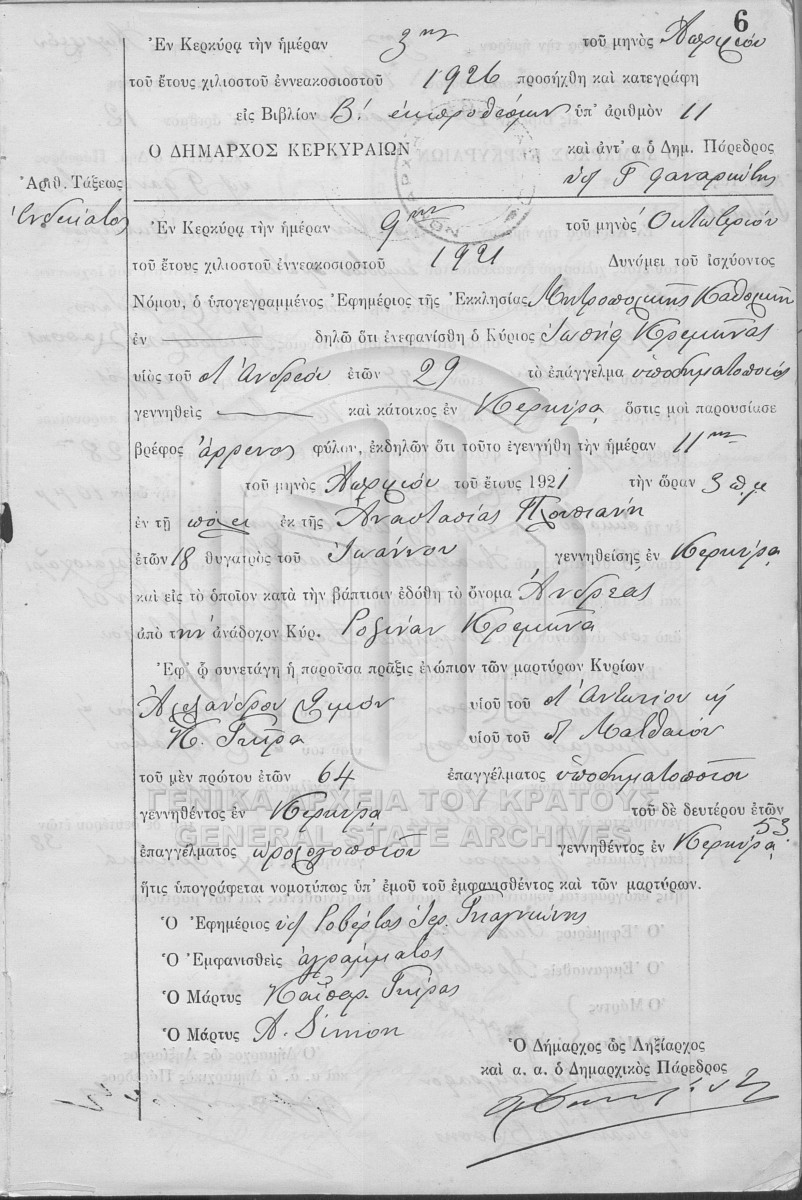 6
Ἐν Κερκύρᾳ τὴν ἡμέραν 3ην τοῦ μηνὸς Ἀπριλίου
τοῦ ἔτους χιλιοστοῦ ἐννεακοσιοστοῦ 1926 προσήχθη καὶ κατεγράφη
εἰς Βιβλίον Β! ἐκπροθέσμων ὑπ' ἀριθμὸν 11
Ο ΔΗΜΑΡΧΟΣ ΚΕΡΚΥΡΑΙΩΝ καὶ ἀντ' α ὁ Δημ. Πάρεδρος
Ἀριθ. Τάξεως
Ἑνδέκατος
Ἐν Κερκύρᾳ τὴν ἡμέραν 9ην τοῦ μηνὸς Ὀκτωβρίου
τοῦ ἔτους χιλιοστοῦ ἐννεακοσιοστοῦ 1921 Δυνάμει τοῦ ἰσχύοντος
Νόμου, ὁ ὑπογεγραμμένος Ἐφημέριος τῆς Ἐκκλησίας Μητροπολιτικῆς Καθολικῆς
ἐν δηλῶ ὅτι ἐνεφανίσθη ὁ Κύριος Ἰωσὴφ Κρεμώνας
υἱὸς τοῦ Ἀνδρέου ἐτῶν 29 τὸ ἐπάγγελμα ὑποδηματοποιός
γεννηθεὶς καὶ κάτοικος ἐν Κερκύρᾳ ὅστις μοὶ παρουσίασε
βρέφος ἄρρενος φύλου, ἐκδηλῶν ὅτι τοῦτο ἐγεννήθη τὴν ἡμέραν 11ην
τοῦ μηνὸς Ἀπριλίου τοῦ ἔτους 1921 τὴν ὥραν 3 π.μ
ἐν τῇ πόλει ἐκ τῆς Ἀναστασίας
ἐτῶν 18 θυγατρὸς τοῦ Ἰωάννου γεννηθείσης ἐν Κερκύρᾳ
καὶ εἰς τὸ ὁποῖον κατὰ τὴν βάπτισιν ἐδόθη τὸ ὄνομα Ἀνδρέας
ἀπὸ την ἀνάδοχον Κύρ. Ροζίναν Κρεμώνα
Ἐφ' ᾧ συνετάγη ἡ παροῦσα πρᾶξις ἐνώπιον τῶν μαρτύρων Κυρίων
Ἀλεξάνδρου Σιμόν υἱοῦ τοῦ Ἀντωνίου κ
Κ. Γκίρα υἱοῦ τοῦ Ματθαίου
τοῦ μὲν πρώτου ἐτῶν 64 ἐπαγγέλματος ὑποδηματοποιοῦ
γεννηθέντος ἐν Κερκύρᾳ τοῦ δὲ δευτέρου ἐτῶν 53
ΓΕΝΙΚΑ ΑΡΧΕΙΑ ΤΟΥ ΚΡΑΤΟΥΣ
GENERAL STATE ARCHIVES
ἐπαγγέλματος ὡρολογοποιοῦ γεννηθέντος ἐν Κερκύρᾳ
ἥτις ὑπογράφεται νομοτύπως ὑπ' ἐμοῦ τοῦ ἐμφανισθέντος καὶ τῶν μαρτύρων.
Ὁ Ἐφημέριος υφ Ροβέρτος Ἱερ.
Ὁ Ἐμφανισθεὶς ἀγράμματος
Ὁ Μάρτυς Γκίρας
Ὁ Μάρτυς A. Simon
Ὁ Δήμαρχος ὡς Ληξίαρχος
καὶ α. α. ὁ Δημαρχικὸς Πάρεδρος